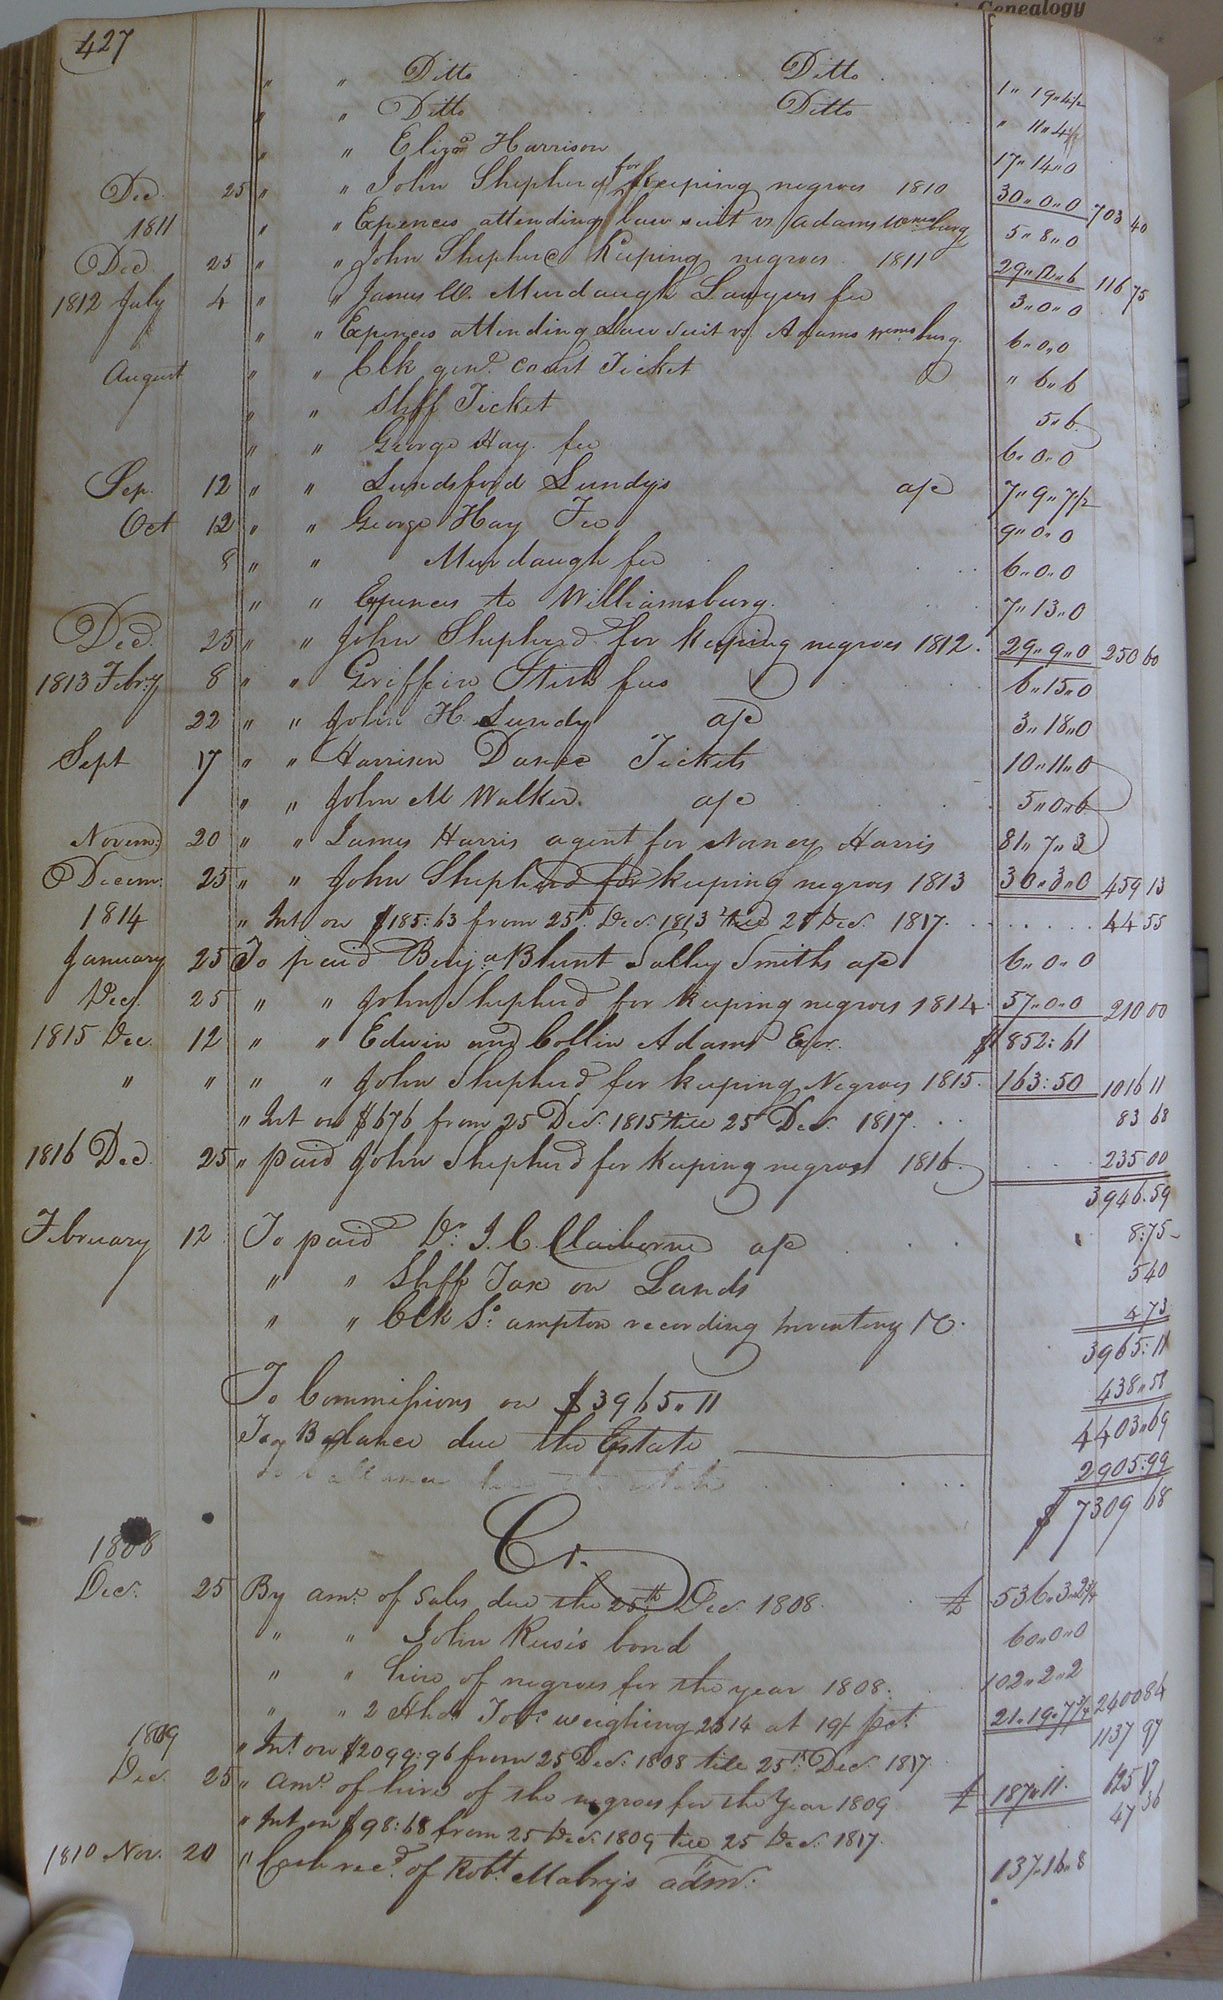 Genealogy
427
" " Ditto Ditto 1" 19"4½
" " Ditto Ditto " 11"4½
" " Eliza Harrison 17"14"0
Dec. 25 " " John Shepherd for keeping negroes 1810 30"0"0 703 40
1811 " " Expences attending law suit vs Adams Wmsburg 5"8"0
Dec 25 " " John Shepherd Keeping negroes 1811 29"12"6 116 75
1812 July 4 " " James W. Murdaugh Lawyers fee 3"0"0
" " Expences attending Law Suit vs. Adams Wmsburg. 6"0"0
August " " Clk genl. Court Ticket " 6"6
" " Shff Ticket 5"6
" " George Hay fee 6"0"0
Sep. 12 " " Lundsford Lundys a/c 7"9"7½
Oct 12 " " George Hay Fee 9"0"0
8 " " Murdaugh fee 6"0"0
" " Expences to Williamsburg. 7"13"0
Dec. 25 " " John Shepherd for keeping negroes 1812. 29"9"0 250 60
1813 Febry 8 " " Griffin Stith fees 6"15"0
22 " " John H. Lundy a/c 3"18"0
Sept 17 " " Harrison Dance Tickets 10"11"0
" " John M Walker. a/c 5"0"6
Novem: 20 " " James Harris agent for Nancy Harris 81"7"3
Decem: 25 " " John Shepherd for keeping negroes 1813 30"3"0 459 13
1814 " Int on $185:63 from 25th Dec. 1813 till 25 Dec. 1817. 44 55
January 25 To paid Benja Blunt Salley Smiths a/c 6"0"0
Dec. 25 " " John Shepherd for keeping negroes 1814. 57"0"0 210 00
1815 Dec. 12 " " Edwin and Collin Adams Exor. $852:61
" " " " John Shepherd for keeping Negroes 1815. 163:50 1016 11
" Int on $676 from 25 Dec. 1815 till 25 Dec. 1817. 83 68
1816 Dec. 25 " paid John Shepherd for keeping negroes 1816. 235 00
3946.59
February 12 To paid Dr. J. C. Claiborne a/c 8:75
" " Shff Tax on Lands 5 40
" " Clk So. ampton recording Inventory &c. 4 73
3965:11
To Commissions on $3965"11 438"58
4403"69
To Ballance due the Estate 2905:99
$ 7309 68
Cr.
1808
Dec. 25 By amt. of Sales due the 25th Dec. 1808. £ 536"3"2¾
" " John Rus's bond 60"0"0
" " hire of negroes for the year 1808. 102"2"2
" " 2 Hhds Tobo weighing 2314 at 19/ pct. 21"19"7¾ 2400 84
1809 " Int on $2099:96 from 25 Dec. 1808 till 25th Dec. 1817. 1137 97
Dec. 25 " Amt. of hire of the negroes for the Year 1809 £ 187"11. 625 17
" Int on $98:68 from 25 Dec. 1809 till 25 Dec. 1817. 47 36
1810 Nov. 20 " Cash recd. of Robt. Mabry's admr. 137"16"8